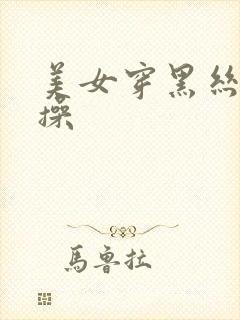 美女穿黑絲
操
馬魯拉